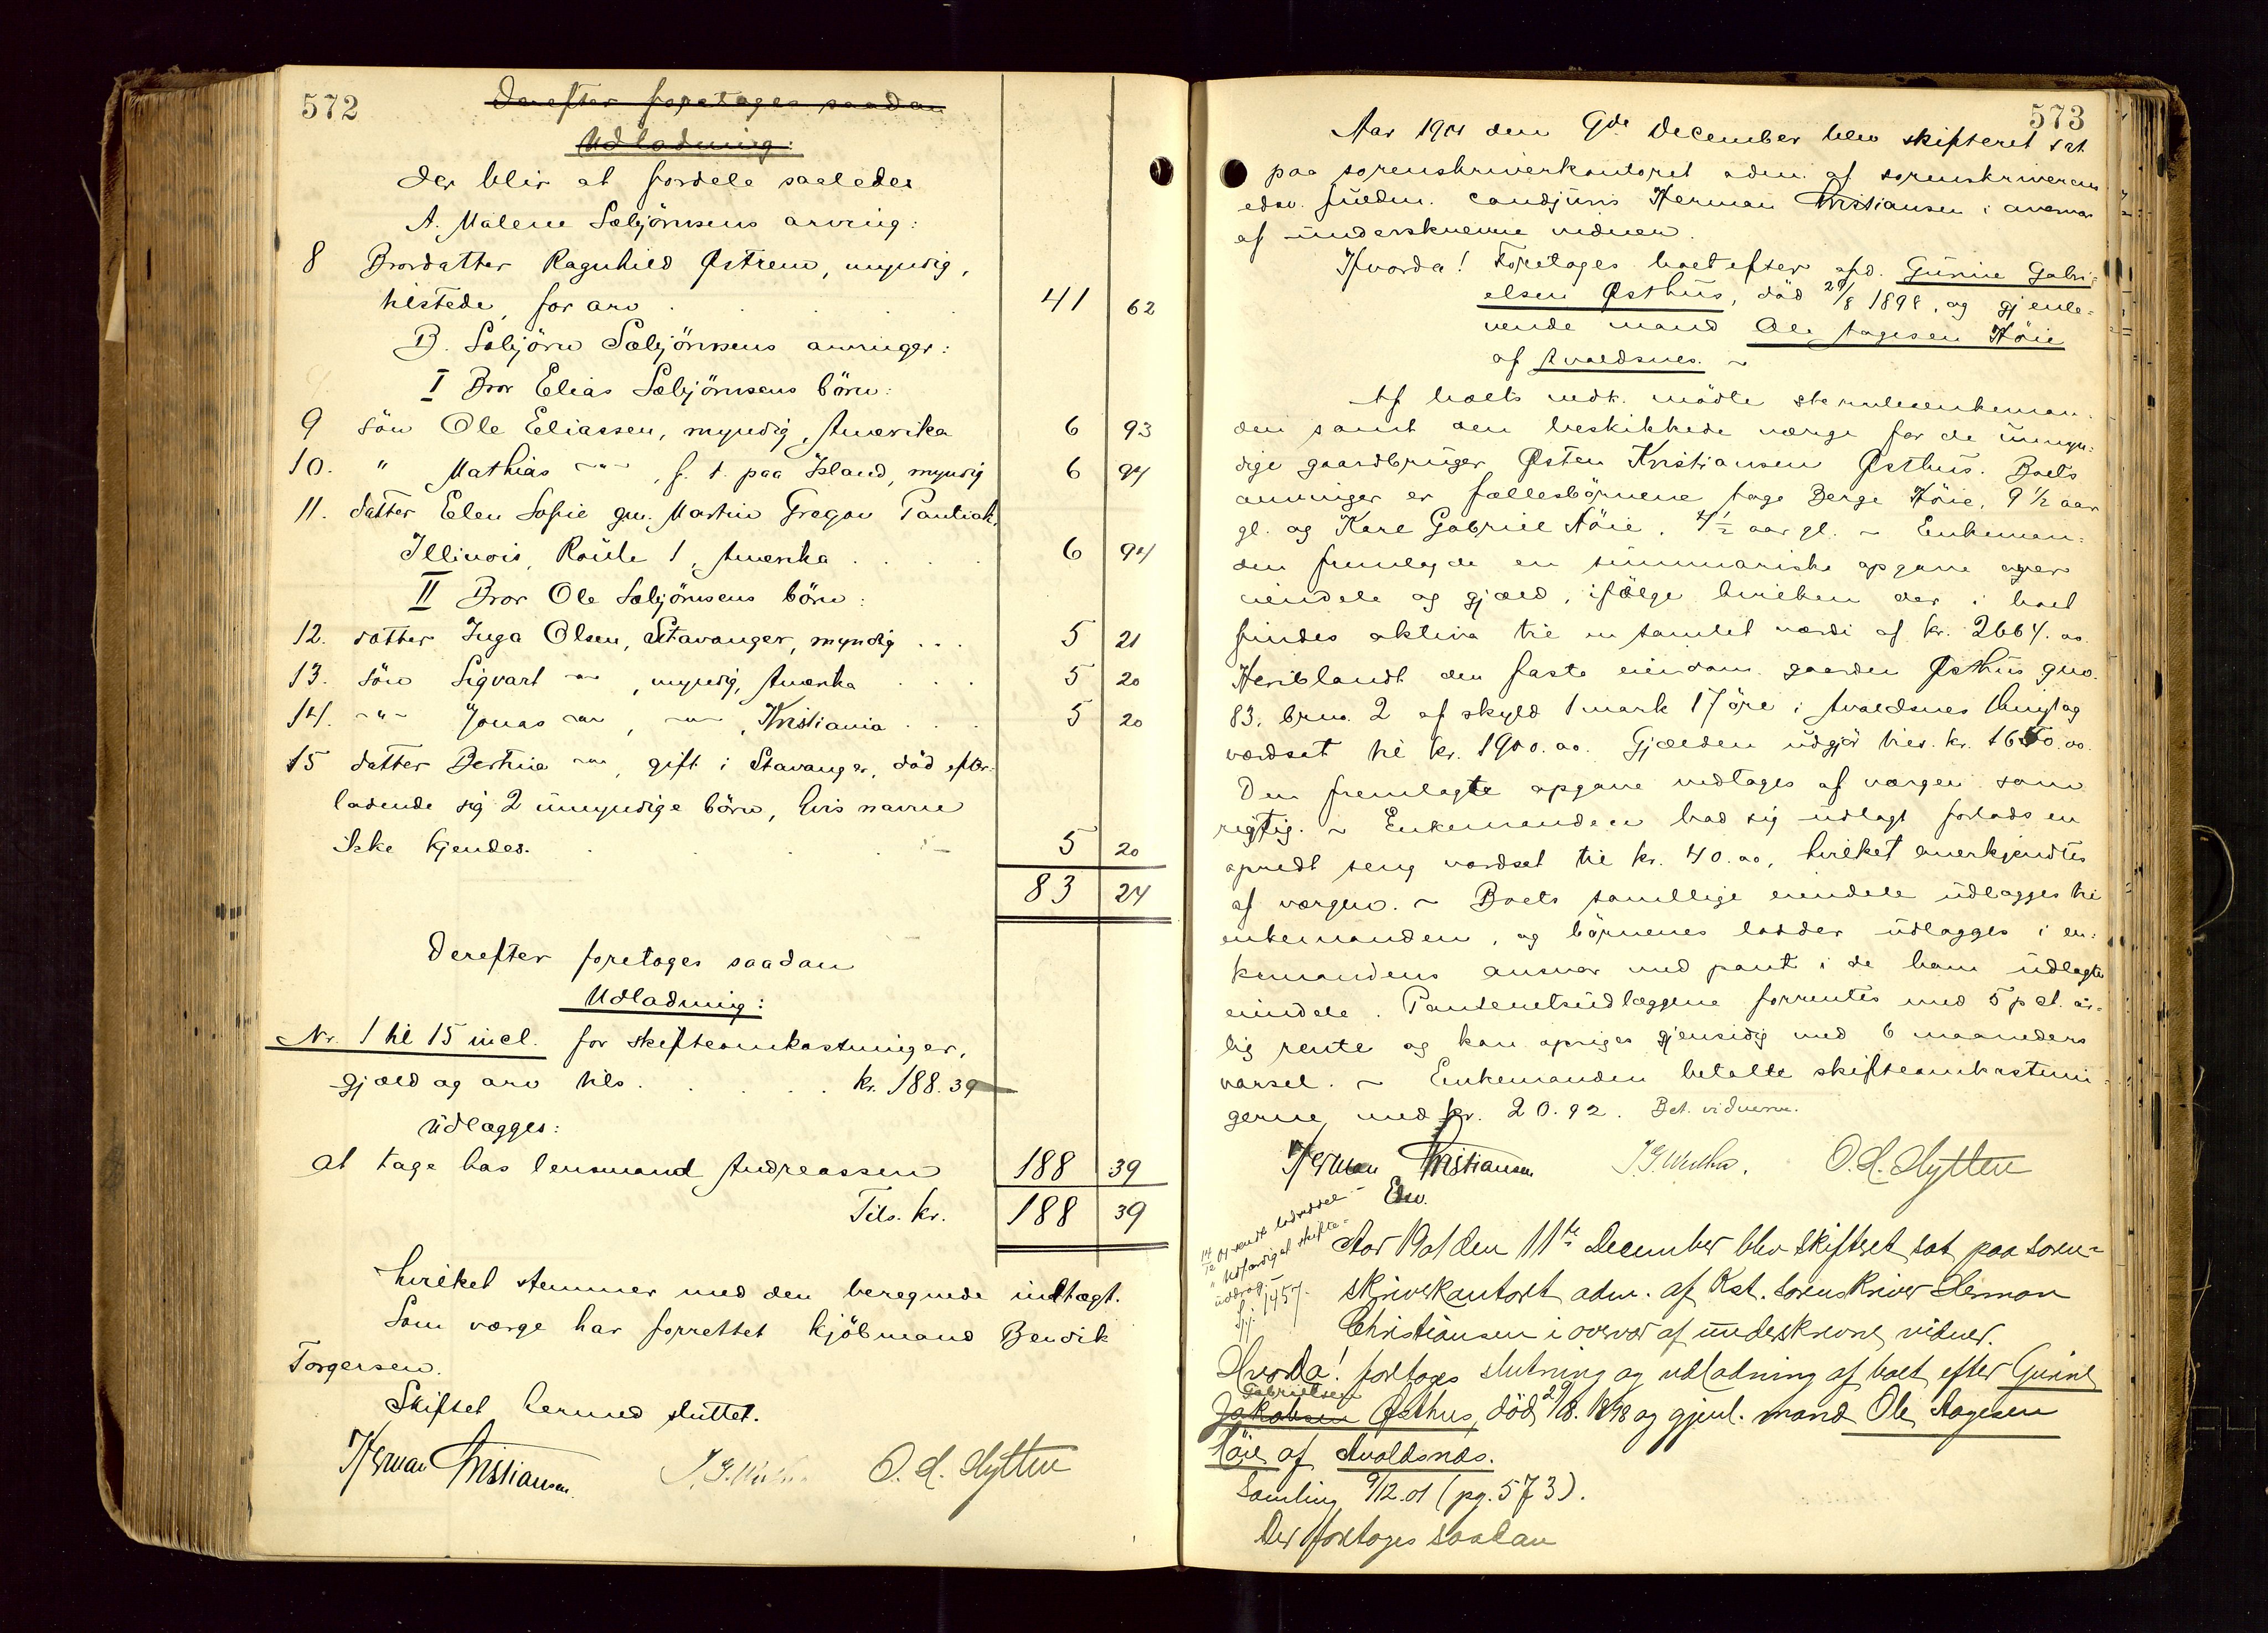 572
Derefter foretages saadan
Udladning:
Der blir at fordele saaledes
A. Malene Sæbjörnsens arving:
8 Brordatter Ragnhild Østrem, myndig,
tilstede, for arv . . . . 41 62
B. Sæbjörn Sæbjörnsens arvinger:
I Bror Elias Sæbjörnsens börn:
9 sön Ole Eliassen, myndig, Amerika 6 93
10. " Mathias -"-, f. t. paa Island, myndig 6 94
11. datter Elen Sofie gm. Martin Gregov Pontiak,
Illinois, Route 1, Amerika . . . . 6 94
II Bror Ole Sæbjörnsens börn:
12. datter Inga Olsen, Stavanger, myndig . . . 5 21
13. sön Sigvart -"-, myndig, Amerika . . . 5 20
14. -"- Jonas -"-, -"-, Kristiania . . . 5 20
15 datter Bertina -"-, gift i Stavanger, död efter-
ladende sig 2 umyndige börn, hvis navne
ikke kjendes. . . . 5 20
83 24
Derefter foretages saadan
Udladning:
Nr. 1 til 15 incl. for skifteomkostninger,
gjæld og arv tils. . . . . kr. 188.39
udlægges:
At tage hos lensmand Andreassen 188 39
Tils. kr. 188 39
hvilket stemmer med den beregnede indtægt.
Som værge har forrettet kjöbmand Bendik
Torgersen.
Skiftet hermed sluttet.
Herman Kristiansen O. H. Hytten
573
Aar 1901 den 9de December blev skifteret sat
paa sorenskriverkontoret adm. af sorenskriverens
edsv. fuldm. cand juris Herman Kristiansen i overvær
af underskrevne vidner.
Hvorda! Foretages boet efter afd. Gurine Gabri-
elsen Østhus, död 29/8 1898, og gjenle-
vende mand Ole Aagesen Höie
af Avaldsnes. ~
Af boets vedk. mödte enkeman-
den samt den beskikkede værge for de umyn-
dige gaardbruger Østen Kristiansen Østhus. Boets
arvinger er fællesbörnene Aage Berge Höie, 9 1/2 aar
gl. og Kare Gabriel Höie, 4 1/2 aar gl. ~ Enkeman-
den fremlagde en summarisk opgave over
eiendele og gjæld, ifölge hvilken der i boet
findes aktiva til en samlet værdi af kr. 2664.00.
Heriblandt den faste eiendom gaarden Østhus gno.
83, brno. 2 af skyld 1 mark 17 öre i Avaldsnes thinglag
værdsat til kr. 1900.00. Gjælden udgjör tils. kr. 1650.00.
Den fremlagte opgave vedtages af værgen som
rigtig. ~ Enkemanden bad sig udlagt forlods en
opredt seng værdsat til kr. 40.00, hvilket anerkjendtes
af værgen. ~ Boets samtlige eiendele udlægges til
enkemanden, og börnenes lodder udlægges i en-
kemandens ansvar med pant i de ham udlagte
eiendele. Panteretsudlæggene forrentes med 5 pct. aar-
lig rente og kan opsiges gjensidig med 6 maaneders
varsel. ~ Enkemanden betalte skifteomkostnin-
gerne med kr. 20.92. Bet. vidnerne.
Herman Kristiansen O. H. Hytten
Edsv.
14/12 01 sendt lodseddel
" Udfærdiget skifte-
uddrag
1457.
Aar 1901 den 11te December blev skifteret sat paa soren-
skriverkontoret adm. af Kst. sorenskriver Herman
Christiansen i overvær af underskrevne vidner.
Hvorda! foretages slutning og udlodning af boet efter Gurine
Gabrielsen
Jakobsen Østhus, död 29/8. 1898 og gjenl. mand Ole Aagesen
Höie af Avaldsnes.
Samling 9/12.01 (pg. 573).
Der foretages saadan